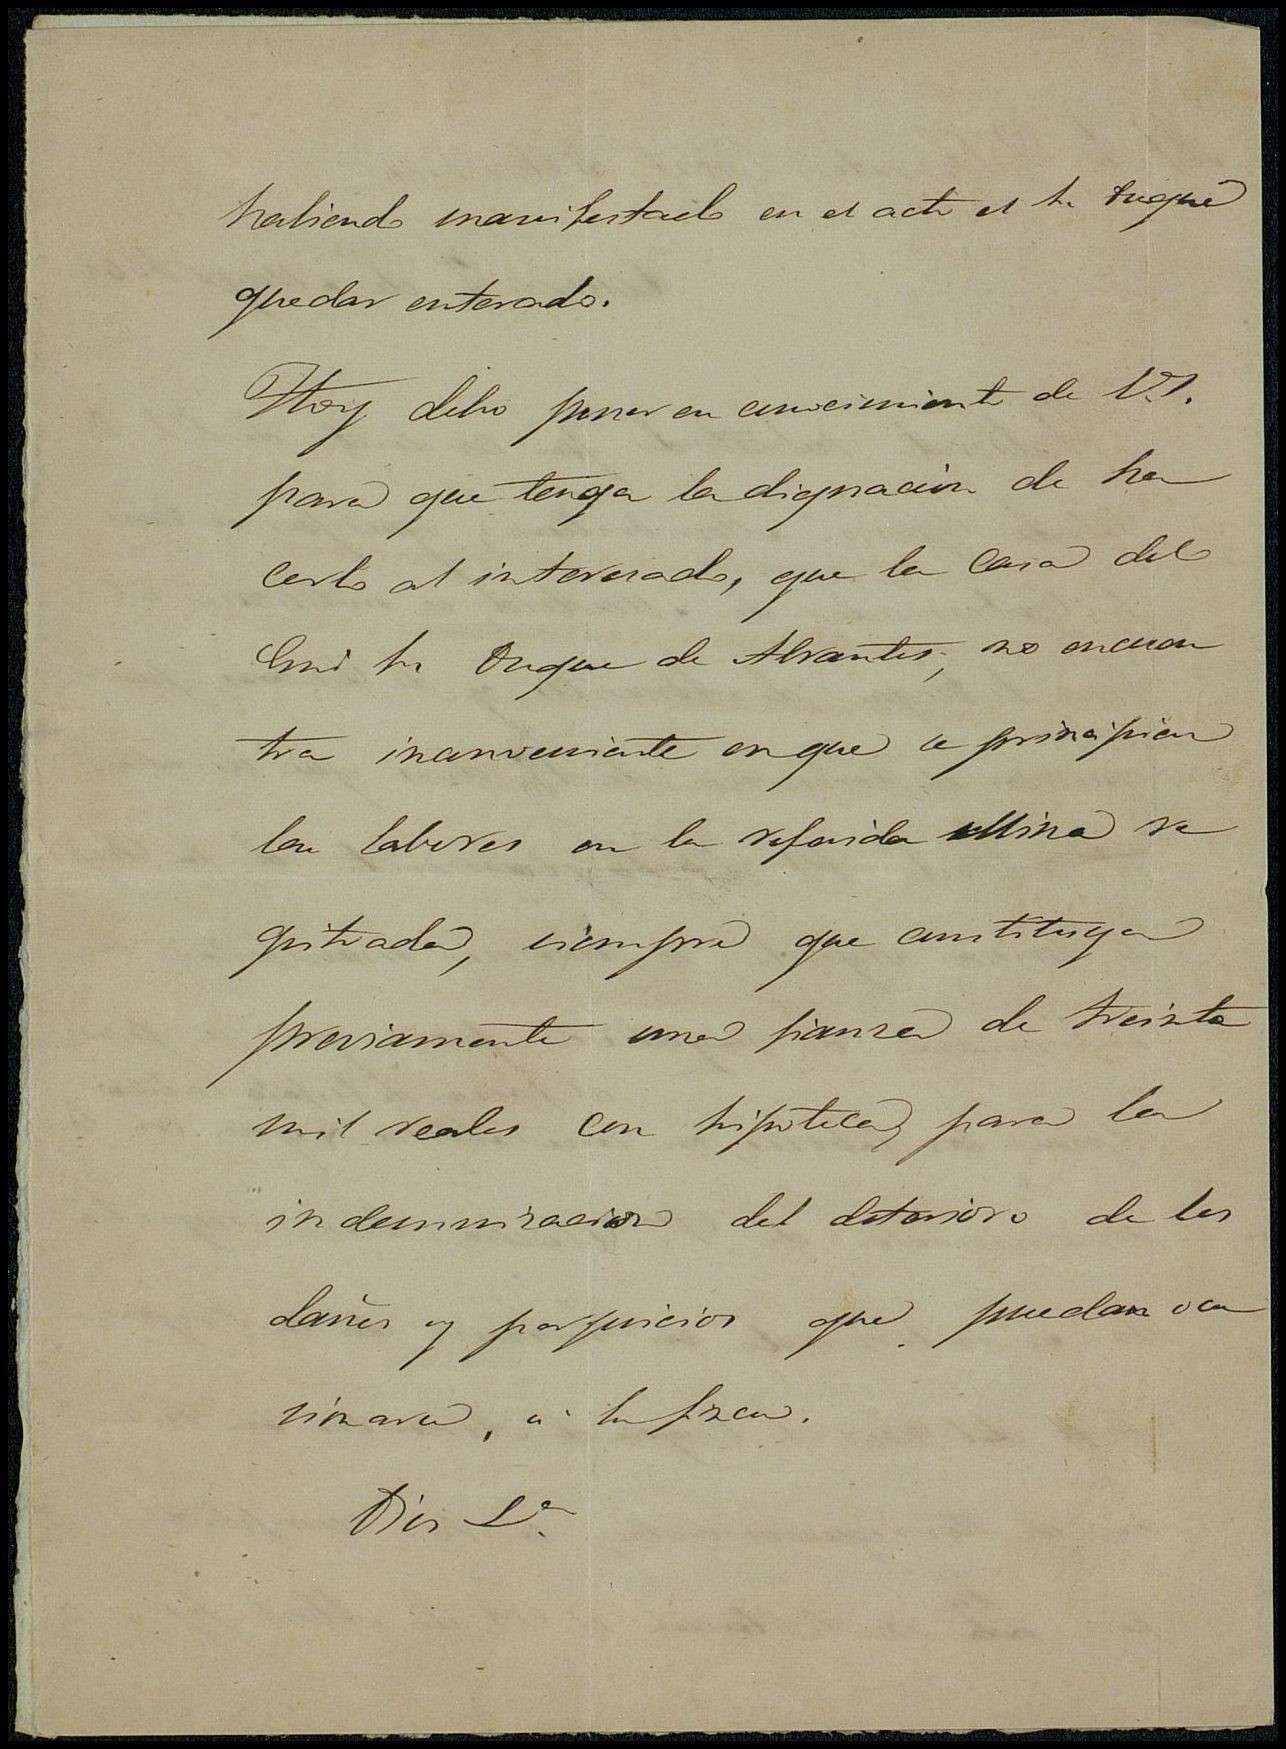 habiendo manifestado en el acto el Sr Duque
quedar enterado.
Hoy debo poner en conocimiento de V.S.
para que tenga la dignacion de ha
cerlo al interesado, que la Casa del
Exmo Sr Duque de Abrantes, no encuen
tra inconveniente en que se principien
las labores en la referida Mina re
gistrada, siempre que constituya
previamente una fianza de treinta
mil reales con hipoteca, para la
indemnizacion del deterioro de los
daños y perjuicios que puedan oca
sionarse, á la finca.
Dios &a.